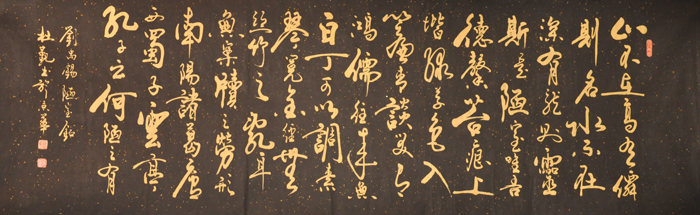 山不在高有僊
則名水不在
深有龍則靈
斯是陋室唯吾
德馨苔痕上
堦綠草色入
簾青談笑有
鴻儒往來無
白丁可以調素
琴閱金經無
絲竹之亂耳
無案牘之勞形
南陽諸葛廬
西蜀子雲亭
孔子云何陋之有
劉禹錫陋室銘